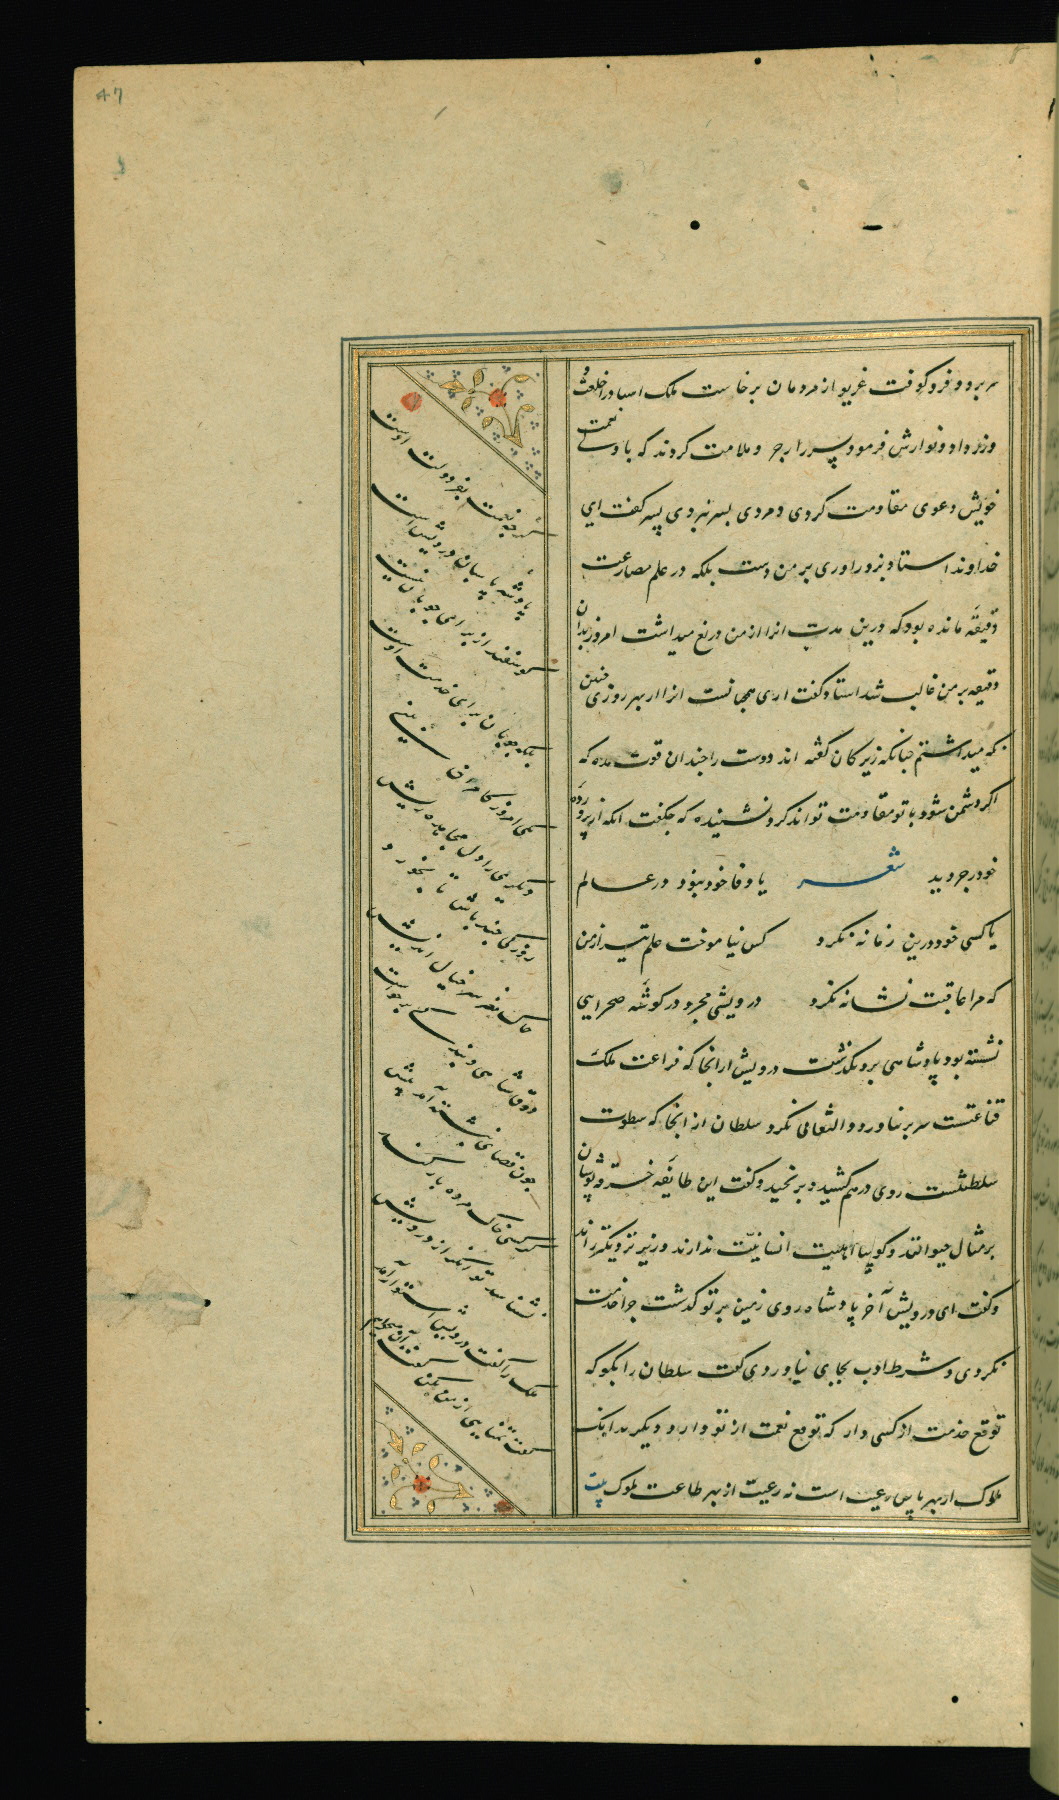 47
سر برد و فرو کوفت غریو از مردمان برخاست ملک استاد را خلعت و
وزر داد و نوازش فرمود و پسر را زجر و ملامت کردند که با ولی نعمت
خویش دعوی مقاومت کردی و مردی بسر نبردی پسر گفت ای
خداوند استاد بزورآوری بر من دست بلکه در علم مصارعت
دقیقه مانده بود که درین مدت آنرا از من دریغ میداشت امروز بدان
دقیقه بر من غالب شد استاد گفت اری همچنانست آنرا از بهر روزی چنین
نگه میداشتم چنانکه زیرکان گفته اند دوست را چندان قوت مده که
اگر دشمن شود با تو مقاومت تواند کرد نشنیده که چگفت آنکه از پرورده
خود جور دید شعر یا وفا خود نبود در عالم
یا کسی خود درین زمانه نکرد کس نیاموخت علم تیر از من
که مرا عاقبت نشانه نکرد درویشی مجرد در گوشه صحرایی
نشسته بود پادشاهی برو بگذشت درویش از آنجا که فراغت ملک
قناعتست سر بر نیاورد و التفاتی نکرد سلطان از آنجا که سطوت
سلطنتست روی درهم کشید و برنجید و گفت این طایفه خرقه پوشان
بر مثال حیوانند و گویا اهلیت انسانیت ندارند وزیر نزدیکش راند
و گفت ای درویش آخر پادشاه روی زمین بر تو گذشت چرا خدمت
نکردی و شرط ادب بجای نیاوردی گفت سلطان را بگو که
توقع خدمت از کسی دار که توقع نعمت از تو دارد و دیگر بدانک
ملوک از بهر پاس رعیت است نه رعیت از بهر طاعت ملوک بیت
پادشه پاسبان درویش است
گرچه نعمت بفر دولت اوست
گوسفند از برای چوپان نیست
بلکه چوپان برای خدمت اوست
یکی امروز کامران بینی
دیگری را دل از مجاهده ریش
روزکی چند باش تا بخورد
خاک مغز سر خیال اندیش
فرق شاهی و بندگی برخاست
چون قضای نبشته آمد پیش
گر کسی خاک مرده باز کند
نشناسد توانگر از درویش
ملک را گفت درویش استوار آمد
گفت از من تمنایی بکن گفت آن میخواهم